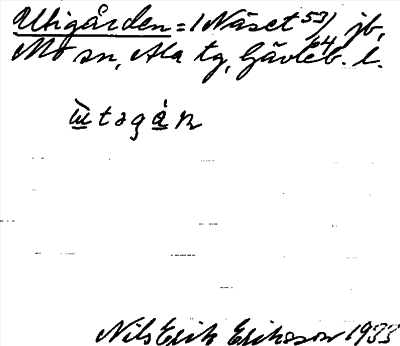 Utigården = 1 Näset 53/54 jb,
Mo sn, Ala tg, Gävleb. l.
ùtəgá̱n
Nils Erik Eriksson 1933